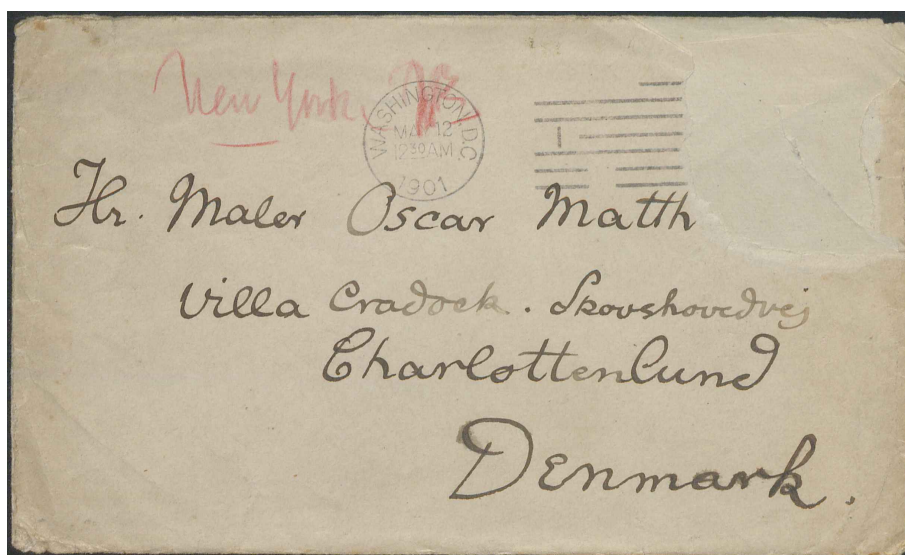 New York.
WASHINGTON, D.C.
MAY 12
12 30 AM
1901
Hr. Maler Oscar Matth
Villa Cradock. Skovshovedvej
Charlottenlund
Denmark.